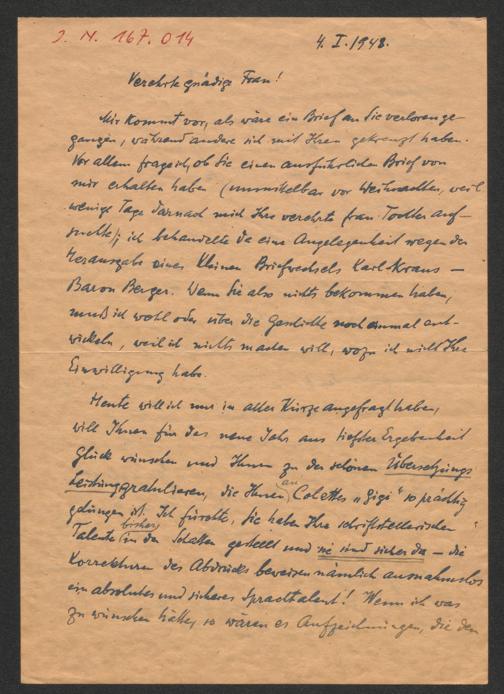 J. N. 167.014
4. I. 1948.
Verehrte gnädige Frau!
Mir kommt vor, als wäre ein Brief an Sie verlorenge-
gangen, während andere sich mit Ihren gekreuzt haben.
Vor allem frage ich, ob Sie einen ausführlichen Brief von
mir erhalten haben (unmittelbar vor Weihnachten, weil
wenige Tage darnach mich Ihre verehrte Frau Tochter auf-
suchte); ich behandelte da eine Angelegenheit wegen der
Herausgabe eines kleinen Briefwechsels Karl Kraus —
Baron Berger. Wenn Sie also nichts bekommen haben,
muß ich wohl oder übel die Geschichte noch einmal ent-
wickeln, weil ich nichts machen will, wozu ich nicht Ihre
Einwilligung habe.
Heute will ich nur in aller Kürze angefragt haben,
will Ihnen für das neue Jahr aus tiefster Ergebenheit
Glück wünschen und Ihnen zu der schönen Übersetzungs-
leistung gratulieren, die Ihnen an Colettes „Gigi" so prächtig
gelungen ist. Ich fürchte, Sie haben Ihre schriftstellerischen
Talente bisher in den Schatten gestellt und sie sind sicher da — die
Korrekturen des Abdrucks beweisen nämlich ausnahmslos
ein absolutes und sicheres Sprachtalent! Wenn ich was
zu wünschen hätte, so wären es Aufzeichnungen, die den